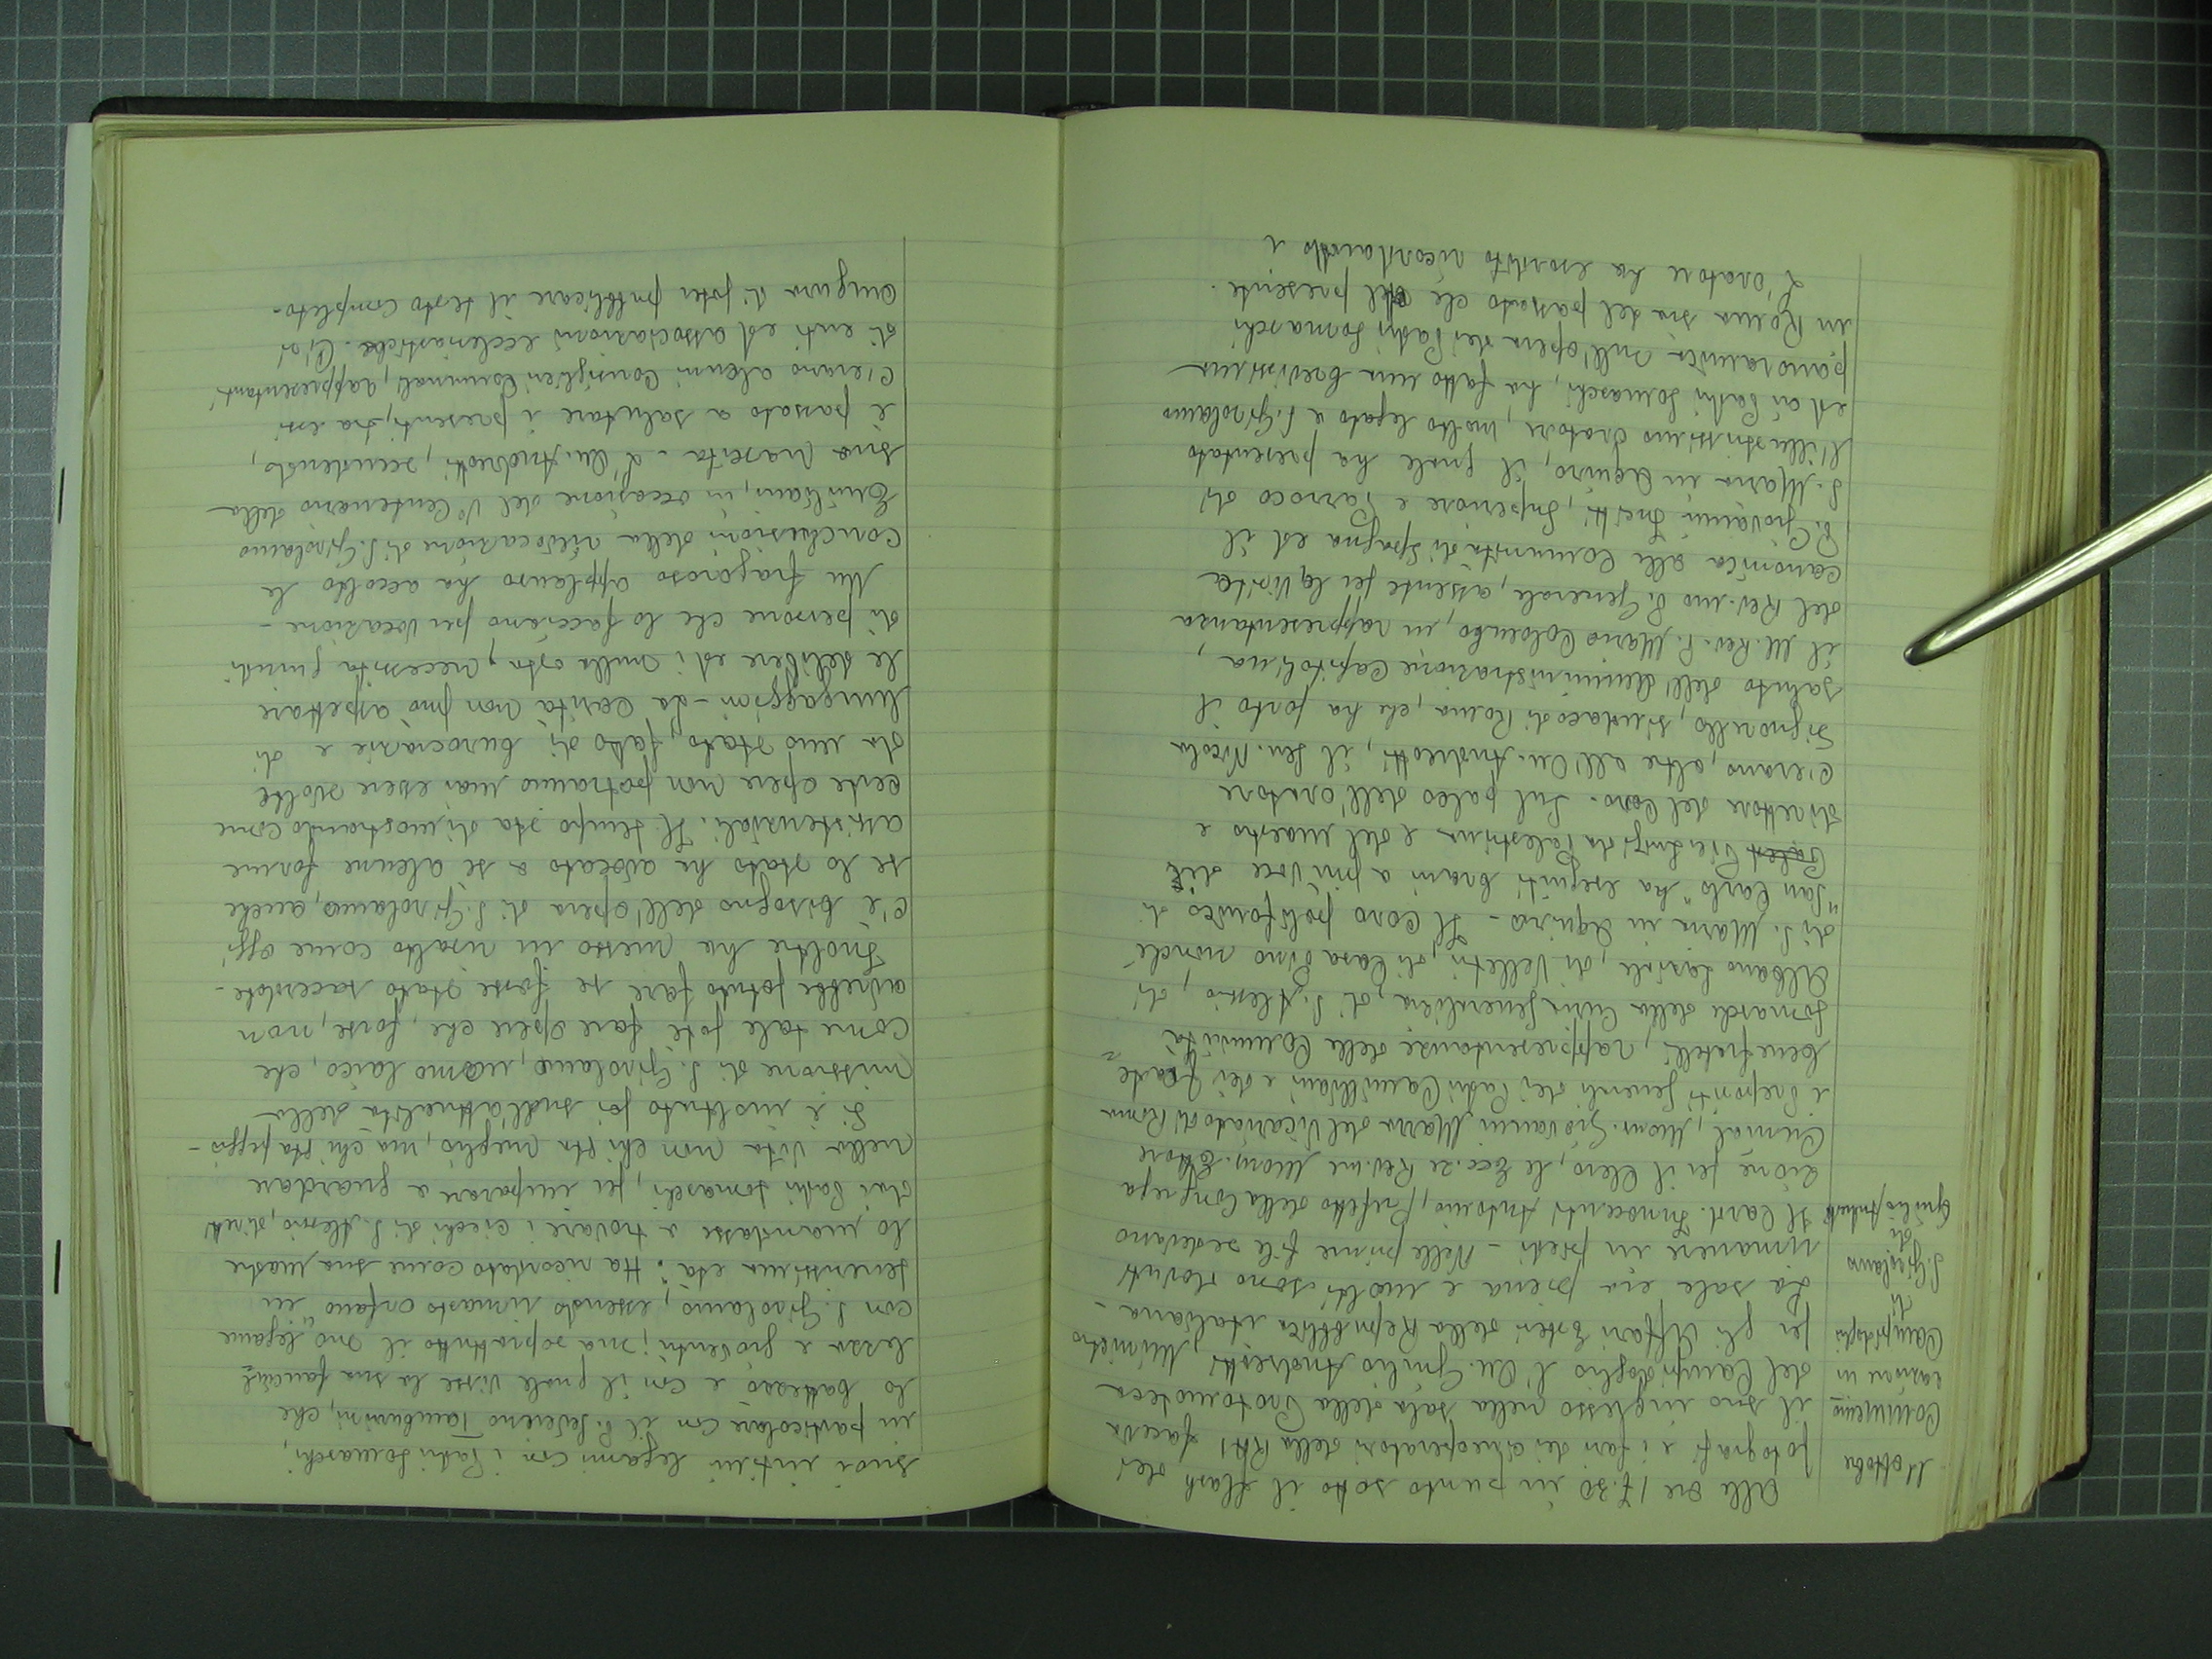 11 ottobre
Commemo=
razione in
Campidoglio
di
S. Girolamo
di
Giulio Andreotti
Alle ore 17.30 in punto sotto il flash dei
fotografi e i fari dei cineoperatori della RAI faceva
il suo ingresso nella sala della Protomoteca
del Campidoglio l'On. Giulio Andreotti, Ministro
per gli Affari Esteri della Repubblica italiana -
La sala era piena e molti sono dovuti
rimanere in piedi - Nelle prime file sedevano
Il Card. Innocenti Antonio, Prefetto della Congrega
zione per il Clero, le Ecc.ze Rev.me Mons. Ettore
Cunial, Mons. Giovanni Marra del Vicariato di Roma
i Prepositi Generali dei Padri Camilliani e dei Fate=
benefratelli, rappresentanze delle Comunità
Somasche della Curia Generalizia, di S. Alessio, di
Albano Laziale, di Velletri, di Casa Pino nonchè
di S. Maria in Aquiro - Il Coro polifonico di
"San Carlo" ha eseguiti brani a più voce di
Palest Pierluigi da Palestrina e del maestro e
direttore del Coro. Sul palco dell'oratore
c'erano, oltre all'On. Andreotti, il Sen. Nicola
Signorello, sindaco di Roma, che ha porto il
saluto dell'Amministrazione Capitolina,
il M. Rev. P. Mario Colombo, in rappresentanza
del Rev.mo P. Generale, assente per la Visita
canonica alle Comunità di Spagna ed il
P. Giovanni Gretti, Superiore e Parroco di
S. Maria in Aquiro, il quale ha presentato
l'illustrissimo Oratore, molto legato a S. Girolamo
ed ai Padri Somaschi, ha fatto una brevissima
panoramica sull'opera dei Padri Somaschi
in Roma sia del passato che del presente.
L'oratore ha esordito ricordando i
suoi intimi legami con i Padri Somaschi,
in particolare con il P. Severino Tamburini, che
lo battezzò e con il quale visse la sua fanciul=
lezza e gioventù; ma soprattutto il suo legame
con S. Girolamo, essendo rimasto orfano "in
tenerissima età". Ha ricordato come sua madre
lo mandasse a trovare i ciechi di S. Alessio, diretti
dai Padri Somaschi, per imparare a guardare
nella vita non chi sta meglio, ma chi sta peggio -
Si è inoltrato poi sull'attualità della
missione di S. Girolamo, uomo laico, che,
come tale potè fare opere che, forse, non
avrebbe potuto fare se fosse stato sacerdote -
Inoltre ha messo in risalto come oggi
c'è bisogno dell'opera di S. Girolamo, anche
se lo stato ha avocato a se alcune forme
assistenziali. Il tempo sta dimostrando come
certe opere non potranno mai essere svolte
da uno stato, fatto di burocrazie e di
lungaggini - La carità non può aspettare
le delibere ed i nulla osta, necessita quindi
di persone che lo facciano per vocazione -
Un fragoroso applauso ha accolto le
conclusioni della rievocazione di S. Girolamo
Emiliani, in occasione del V° Centenario della
sua nascita. L'On. Andreotti, scendendo,
è passato a salutare i presenti, tra essi
c'erano alcuni Consiglieri Comunali, rappresentanti
di enti ed associazioni ecclesiastiche. Ci si
augura di poter pubblicare il testo completo -